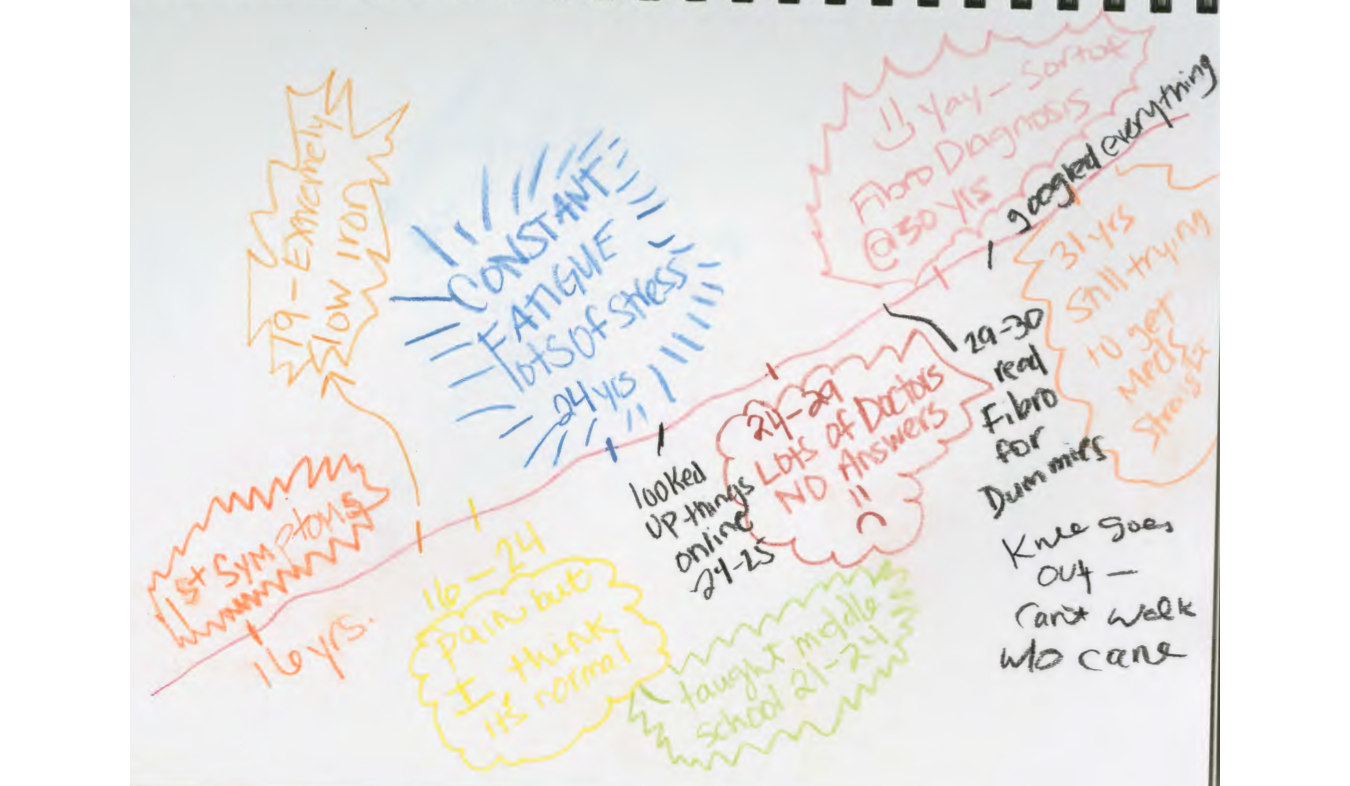 1st Symptoms
16 yrs.
19 - Extremely
low iron
16-24
pain but
I think
it's normal
CONSTANT
FATIGUE
lots of stress
24 yrs
taught middle
school 21-24
looked
up things
online
24-25
24-29
Lots of Doctors
NO Answers
29-30
read
Fibro
for
Dummies
Yay - Sort of
Fibro Diagnosis
@30 yrs
googled everything
31 yrs
Still trying
to get
Meds
Knee goes
out -
Can't walk
w/o cane